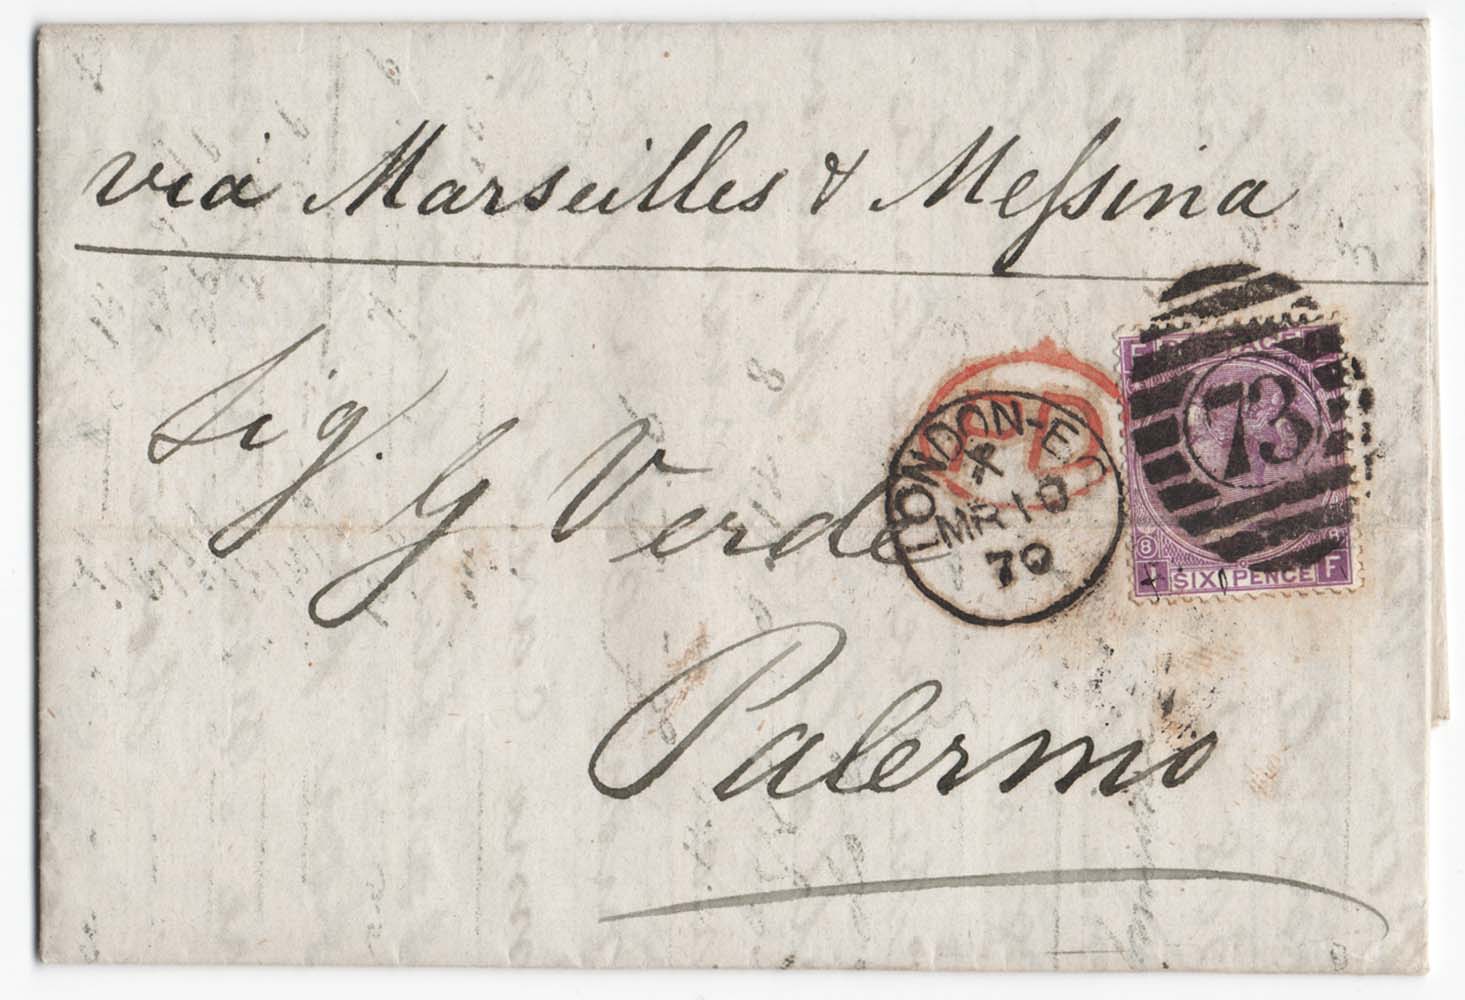 via Marseilles & Meſsina
Sig. G Verde
Palermo
PD
LONDON-E.C
MR 10
70
73
F
POSTAGE
8
8
I SIX PENCE F